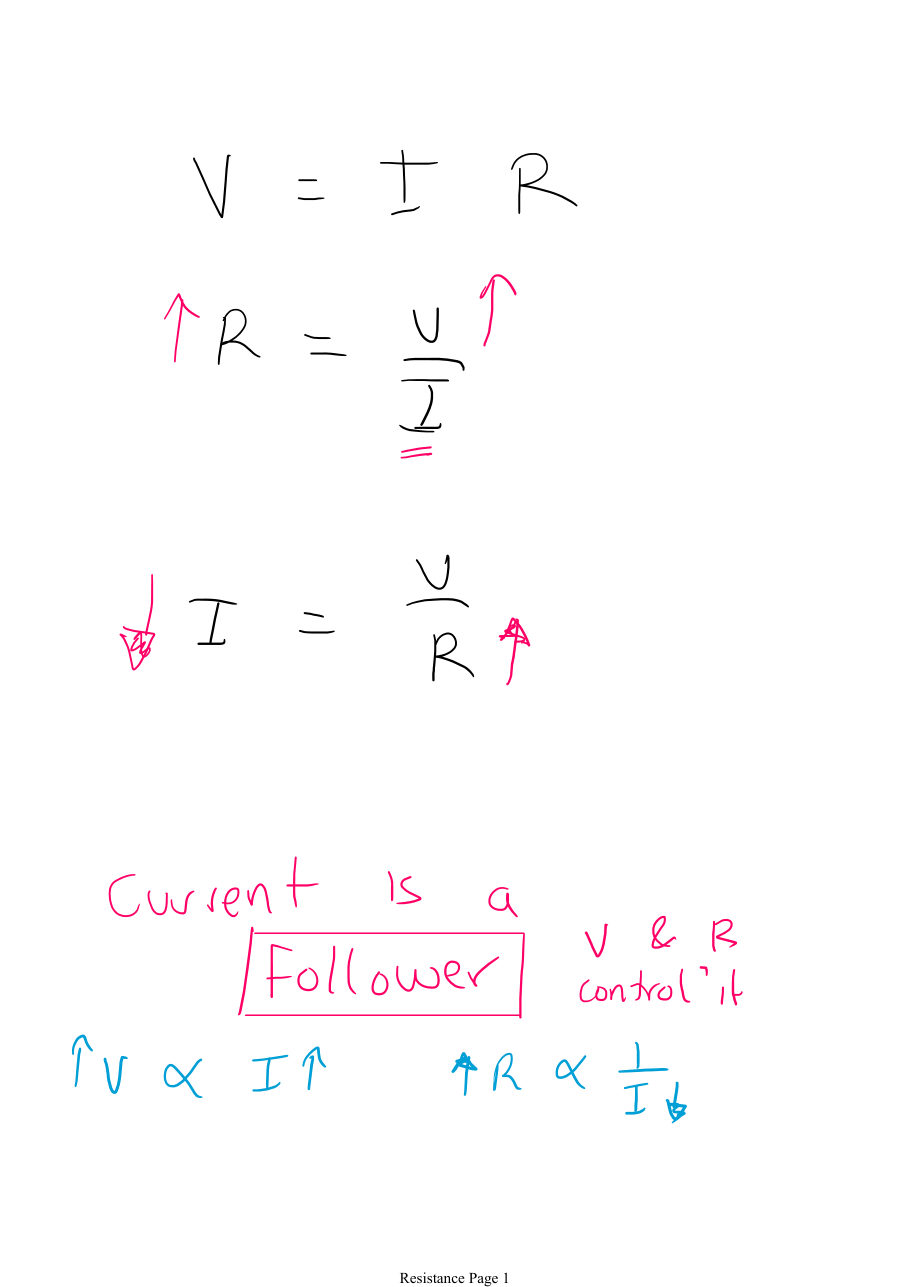 V = I R
↑ R = V/I ↑
↓ I = V/R ↑
Current is a
Follower
V & R
control it
↑ V ∝ I ↑
↑ R ∝ 1/I ↓
Resistance Page 1